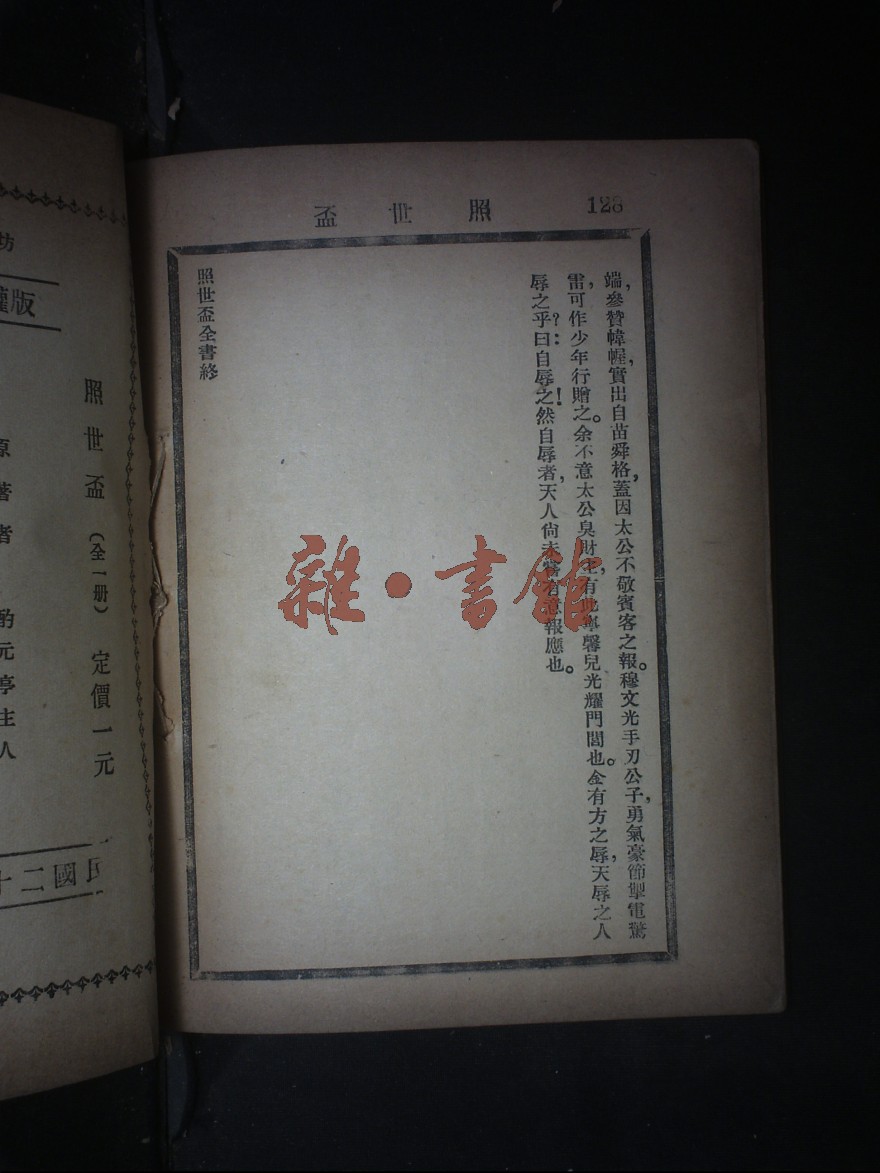 照世盃 128
端，參贊幃幄，實出自苗舜格，蓋因太公不敬賓客之報。穆文光手刃公子，勇氣豪節，掣電驚
雷，可作少年行贈之。余不意太公臭財主，有此寧馨兒光耀門閭也。金有方之辱，天辱之，人
辱之乎？曰：自辱之！然自辱者，天人尙未報應也。
照世盃全書終
雜·書館
坊
版權
照世盃（全一册）定價一元
原著者 酌元亭主人
民國二十